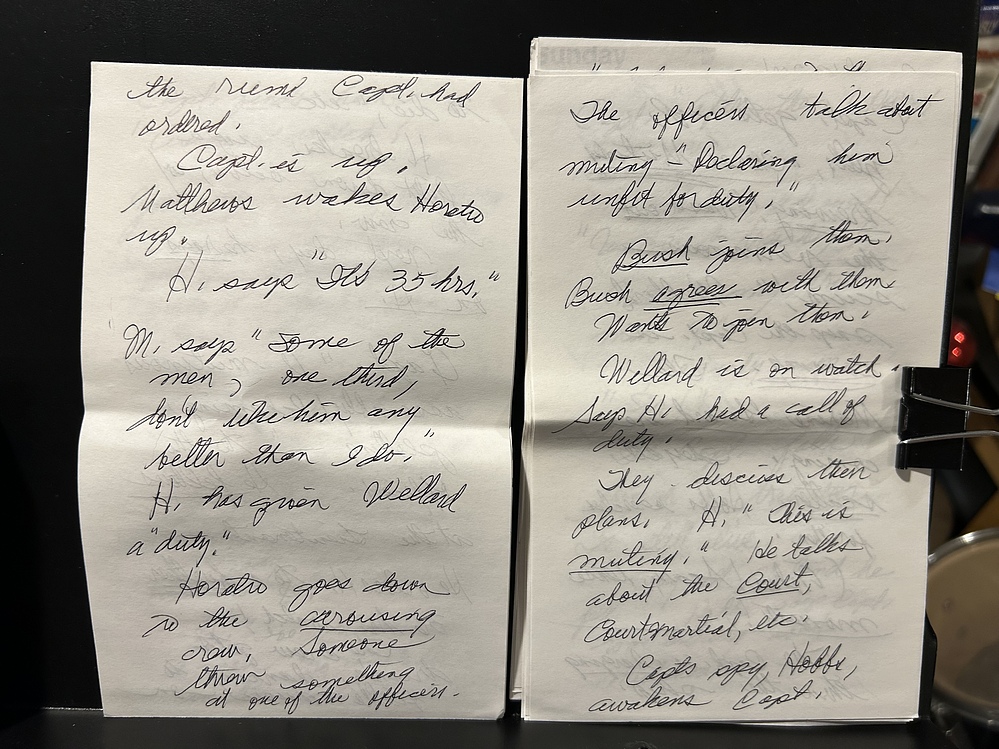 the rum Capt. had
ordered.
Capt. is up.
Matthews wakes Horatio
up.
H. says "It's 35 hrs."
M. says "Some of the
men, one third,
don't like him any
better than I do."
H. has given Wellard
a "duty."
Horatio goes down
to the arrousing
crew. Someone
threw something
at one of the officers.
Sunday
The officers talk about
mutiny - "Declaring him
unfit for duty."
Bush joins them.
Bush agrees with them
Wants to join them.
Wellard is on watch.
Says H. had a call of
duty.
They discuss their
plans. H. "This is
mutiny." He talks
about the Court,
Court martial, etc.
Capts spy, Hobbs,
awakens Capt.